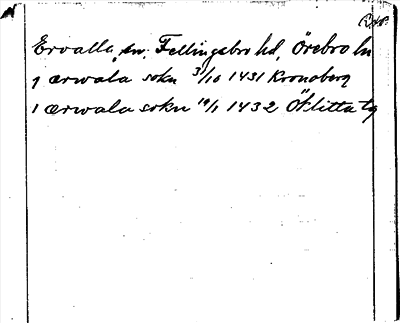 Ervalla, sn, Fellingsbro hd, Örebro ln
j ærwala sokn 3/10 1431 Kronoberg
i ærwala sokn 19/1 1432